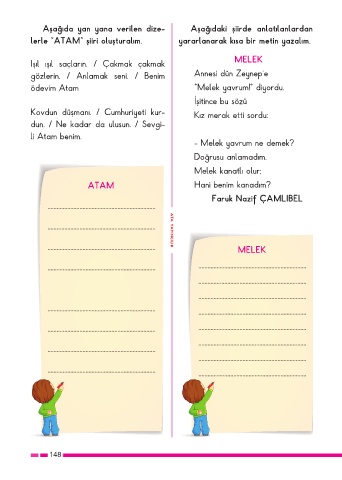 Aşağıda yan yana verilen dize-
lerle "ATAM" şiiri oluşturalım.
Işıl ışıl saçların. / Çakmak çakmak
gözlerin. / Anlamak seni. / Benim
ödevim Atam
Kovdun düşmanı. / Cumhuriyeti kur-
dun. / Ne kadar da ulusun. / Sevgi-
li Atam benim.
ATAM
ATA YAYINCILIK
Aşağıdaki şiirde anlatılanlardan
yararlanarak kısa bir metin yazalım.
MELEK
Annesi dün Zeynep'e
"Melek yavrum!" diyordu.
İşitince bu sözü
Kız merak etti sordu:
- Melek yavrum ne demek?
Doğrusu anlamadım.
Melek kanatlı olur;
Hani benim kanadım?
Faruk Nafiz ÇAMLIBEL
MELEK
148